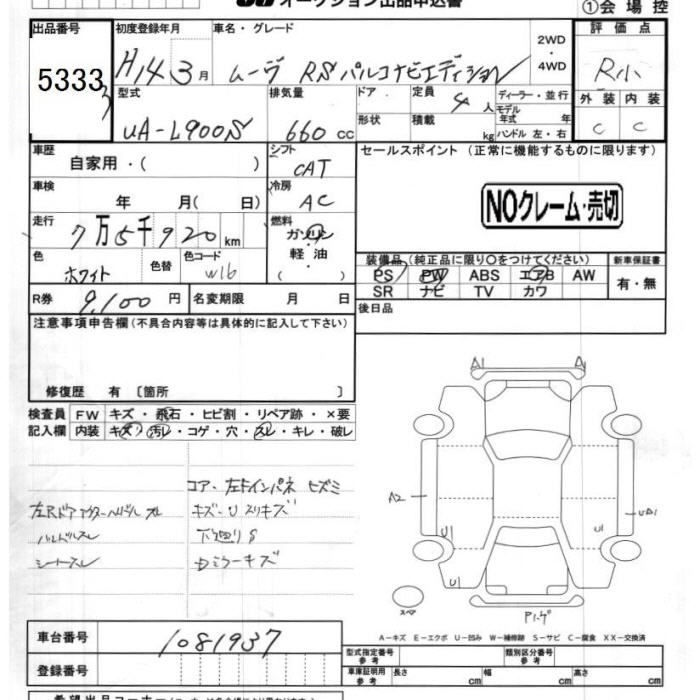 オークション出品申込書
①会場控
出品番号 初度登録年月 車名・グレード 2WD・4WD 評価点
5333 H14 3月 ムーヴ RS パルコナビエディション R小
型式 排気量 ドア 定員 4人 ディーラー・並行 外装 内装
UA-L900S 660cc 形状 積載 kg モデル年式 年 ハンドル 左・右 C C
車歴 シフト セールスポイント (正常に機能するものに限ります)
自家用・( ) CAT
車検 冷房
年 月( 日) AC NOクレーム・売切
走行 燃料
7万5千920km ガソリン
色 色替 色コード 軽油 装備品(純正品に限り○をつけてください) 新車保証書
ホワイト W16 ( ) PS PW ABS エアB AW 有・無
SR ナビ TV カワ
R券 9,100円 名変期限 月 日 後日品
注意事項申告欄(不具合内容等は具体的に記入して下さい)
修復歴 有 〔箇所 〕
検査員 FW キズ・飛石・ヒビ割・リペア跡・×要
記入欄 内装 キズ・汚レ・コゲ・穴・スレ・キレ・破レ
A1 A1
コア・左右インパネ ヒズミ
キズ・Uスリキズ
下廻りS
Dミラーキズ
ハンドルスレ
シートスレ
A2 U1 U1 UA1
U1
スペア
車台番号 1081937
登録番号
A-キズ E-エクボ U-凹み W-補修跡 S-サビ C-腐食 XX-交換済
型式指定番号 参考 類別区分番号 参考
車庫証明用 参考 長さ cm 幅 cm 高さ cm